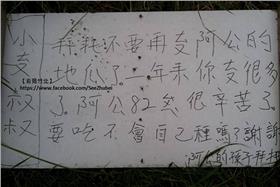 小
偷
叔
叔
拜託不要再支阿公的
地瓜了一年來你支很多
了阿公82歲很辛苦了
要吃不會自己種嗎?謝謝
阿公的孩子拜託
【有閒竹北】
www.facebook.com/SeeZhubei